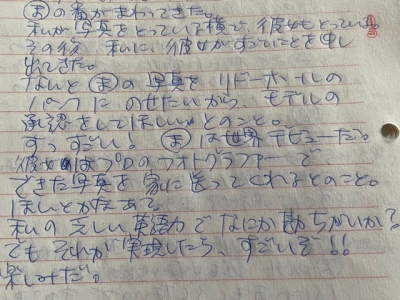 ⓜの番がまわってきた。
私が写真をとっていて横で、彼女もとっている。
その後、私に彼女がすごいことを申し
出てきた。
なんとⓜの写真を リドーホールの
ページにのせたいから、モデルの
承認をしてほしいとのこと。
すっごい! ⓜは世界デビューだ。
彼女はプロのフォトグラファーで、
できた写真を家に送ってくれるとのこと。
ほんとかなあ?
私の乏しい英語力でなにか勘ちがいか?
でも それが実現したら、すごいぞ!!
楽しみだ。